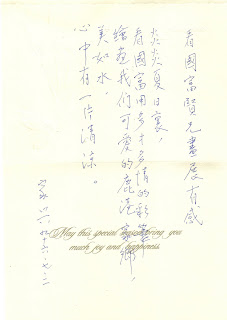 看國富賢兄畫展有感
炎炎夏日裏,
看國富用多才多情的彩筆
繪畫我们可愛的鹿港家鄉,
美如水,
心中有一片清涼。
九十六.七.二
May this special season bring you
much joy and happiness